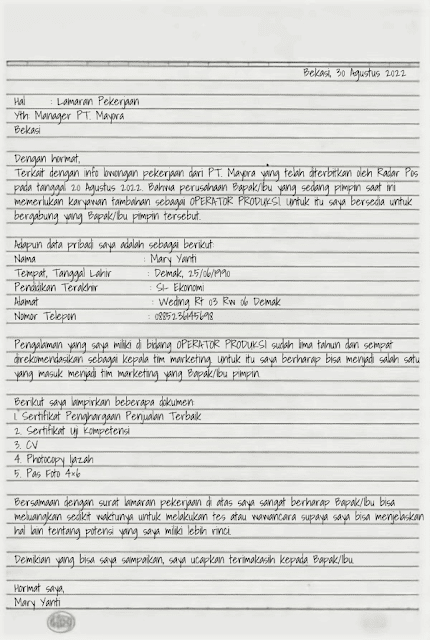 Bekasi, 30 Agustus 2022
Hal : Lamaran Pekerjaan
Yth Manager PT. Mayora
Bekasi
Dengan hormat,
Terkait dengan info lowongan pekerjaan dari PT. Mayora yang telah diterbitkan oleh Radar Pos
pada tanggal 20 Agustus 2022. Bahwa perusahaan Bapak/Ibu yang sedang pimpin saat ini
memerlukan karyawan tambahan sebagai OPERATOR PRODUKSI. Untuk itu saya bersedia untuk
bergabung yang Bapak/Ibu pimpin tersebut.
Adapun data pribadi saya adalah sebagai berikut:
Nama : Mary Yanti
Tempat, Tanggal Lahir : Demak, 25/06/1990
Pendidikan Terakhir : S1- Ekonomi
Alamat : Weding Rt 03 Rw 06 Demak
Nomor Telepon : 0885236145698
Pengalaman yang saya miliki di bidang OPERATOR PRODUKSI sudah lima tahun dan sempat
direkomendasikan sebagai kepala tim marketing. Untuk itu saya berharap bisa menjadi salah satu
yang masuk menjadi tim marketing yang Bapak/Ibu pimpin.
Berikut saya lampirkan beberapa dokumen
1. Sertifikat Penghargaan Penjualan Terbaik
2. Sertifikat Uji Kompetensi
3. CV
4. Photocopy Ijazah
5. Pas Foto 4x6
Bersamaan dengan surat lamaran pekerjaan di atas saya sangat berharap Bapak/Ibu bisa
meluangkan sedikit waktunya untuk melakukan tes atau wawancara supaya saya bisa menjelaskan
hal lain tentang potensi yang saya miliki lebih rinci.
Demikian yang bisa saya sampaikan, saya ucapkan terimakasih kepada Bapak/Ibu.
Hormat saya,
Mary Yanti